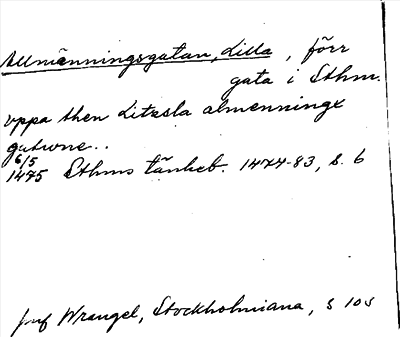 Allmänningsgatan, Lilla, förr
gata i Sthm.
uppa then litzsla almenningx
gatwne..
6/5
1475 Sthms tänkeb. 1474-83, s. 6
jmf Wrangel, Stockholmiana, s 105